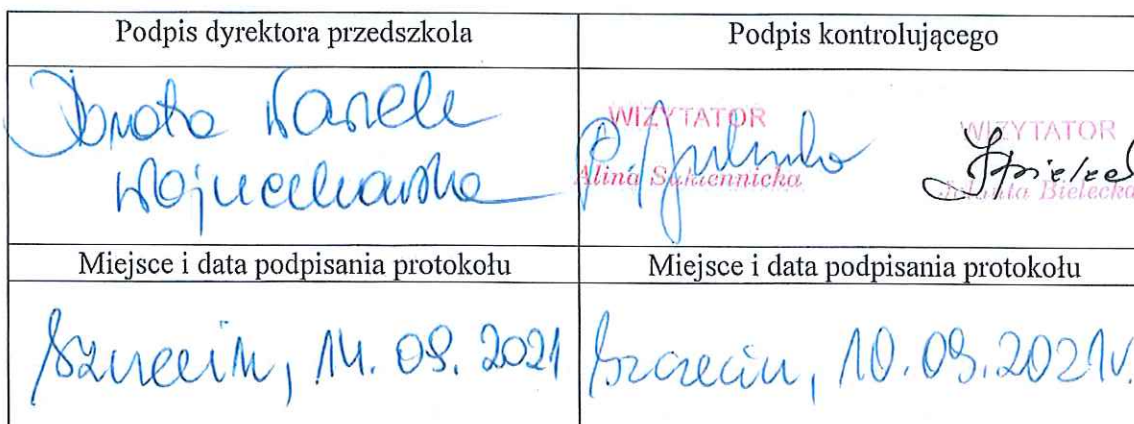 Podpis dyrektora przedszkola
Podpis kontrolującego
Dorota
Wojciechowska
WIZYTATOR
Alina Sukiennicka
WIZYTATOR
Jolanta Bielecka
Miejsce i data podpisania protokołu
Miejsce i data podpisania protokołu
Szczecin, 14. 09. 2021
Szczecin, 10.09.2021r.